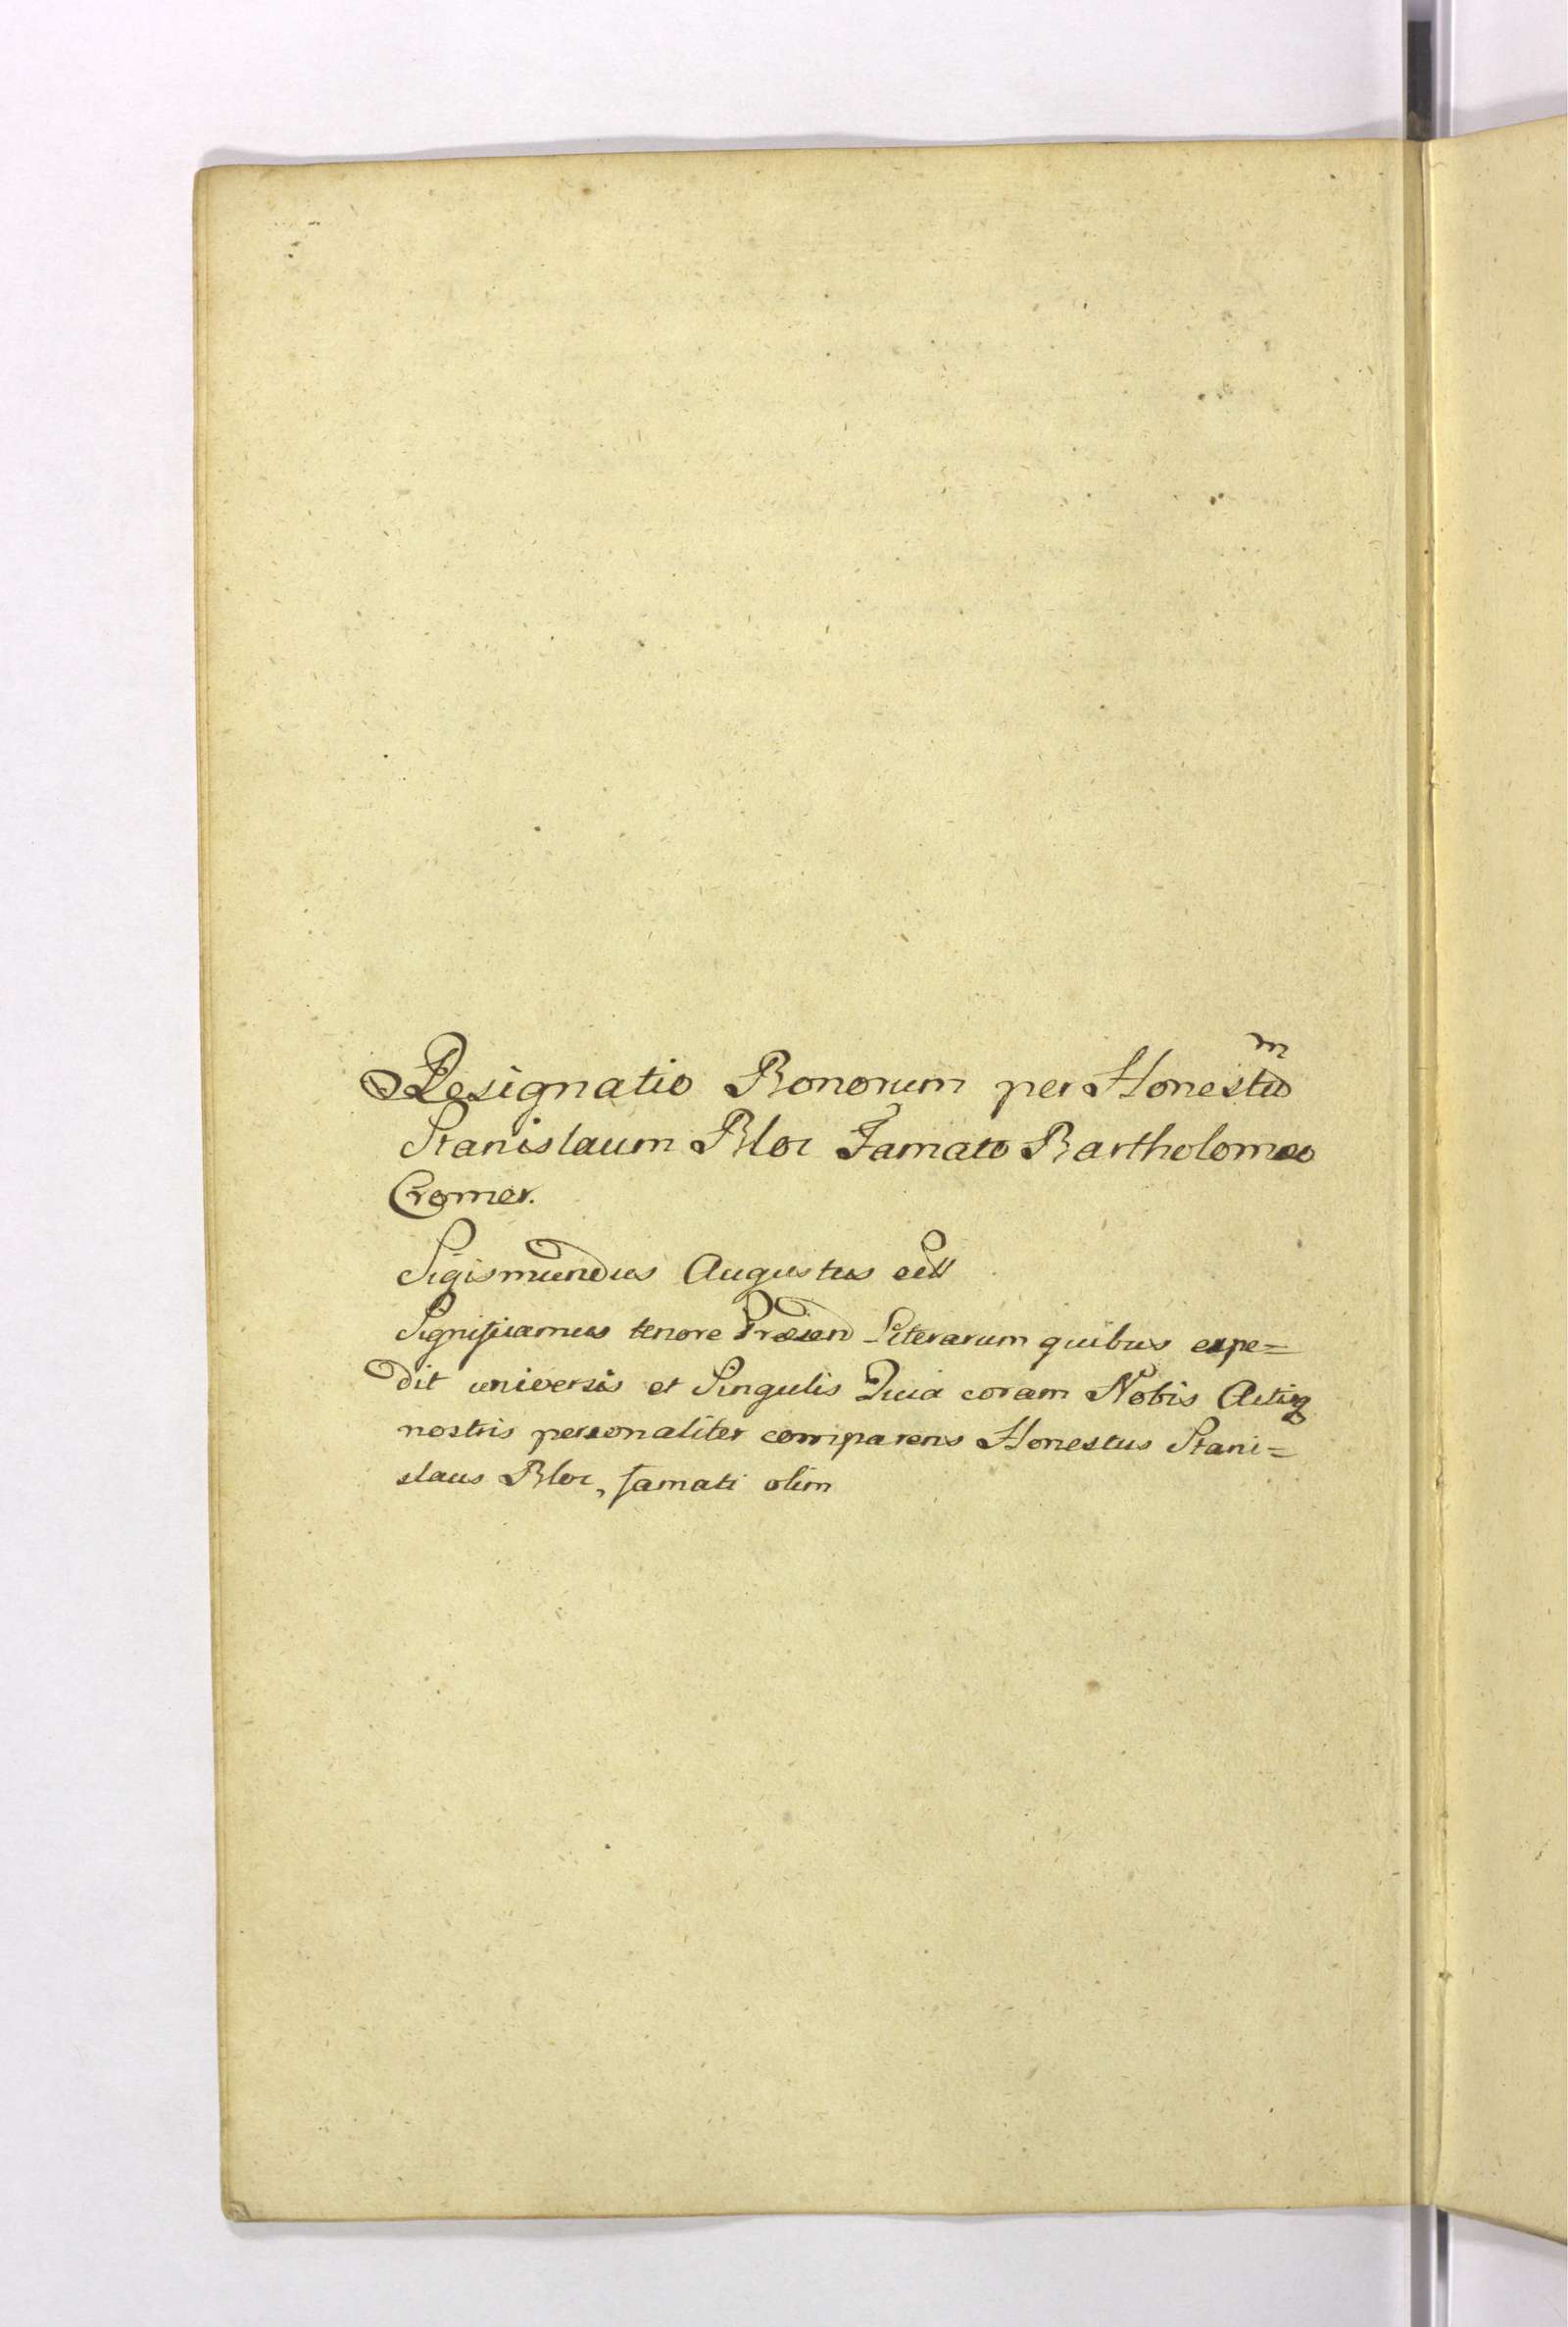 Resignatio Bonorum per Honestu^m
Stanislaum Bloc Famato Bartholomeo
Cromer.
Sigismundus Augustus
Significamus tenore Præsen Literarum quibus expe=
dit universis et Singulis Quia coram Nobis Actisq
nostris personaliter comparens Honestus Stani=
slaus Bloc, famati olim